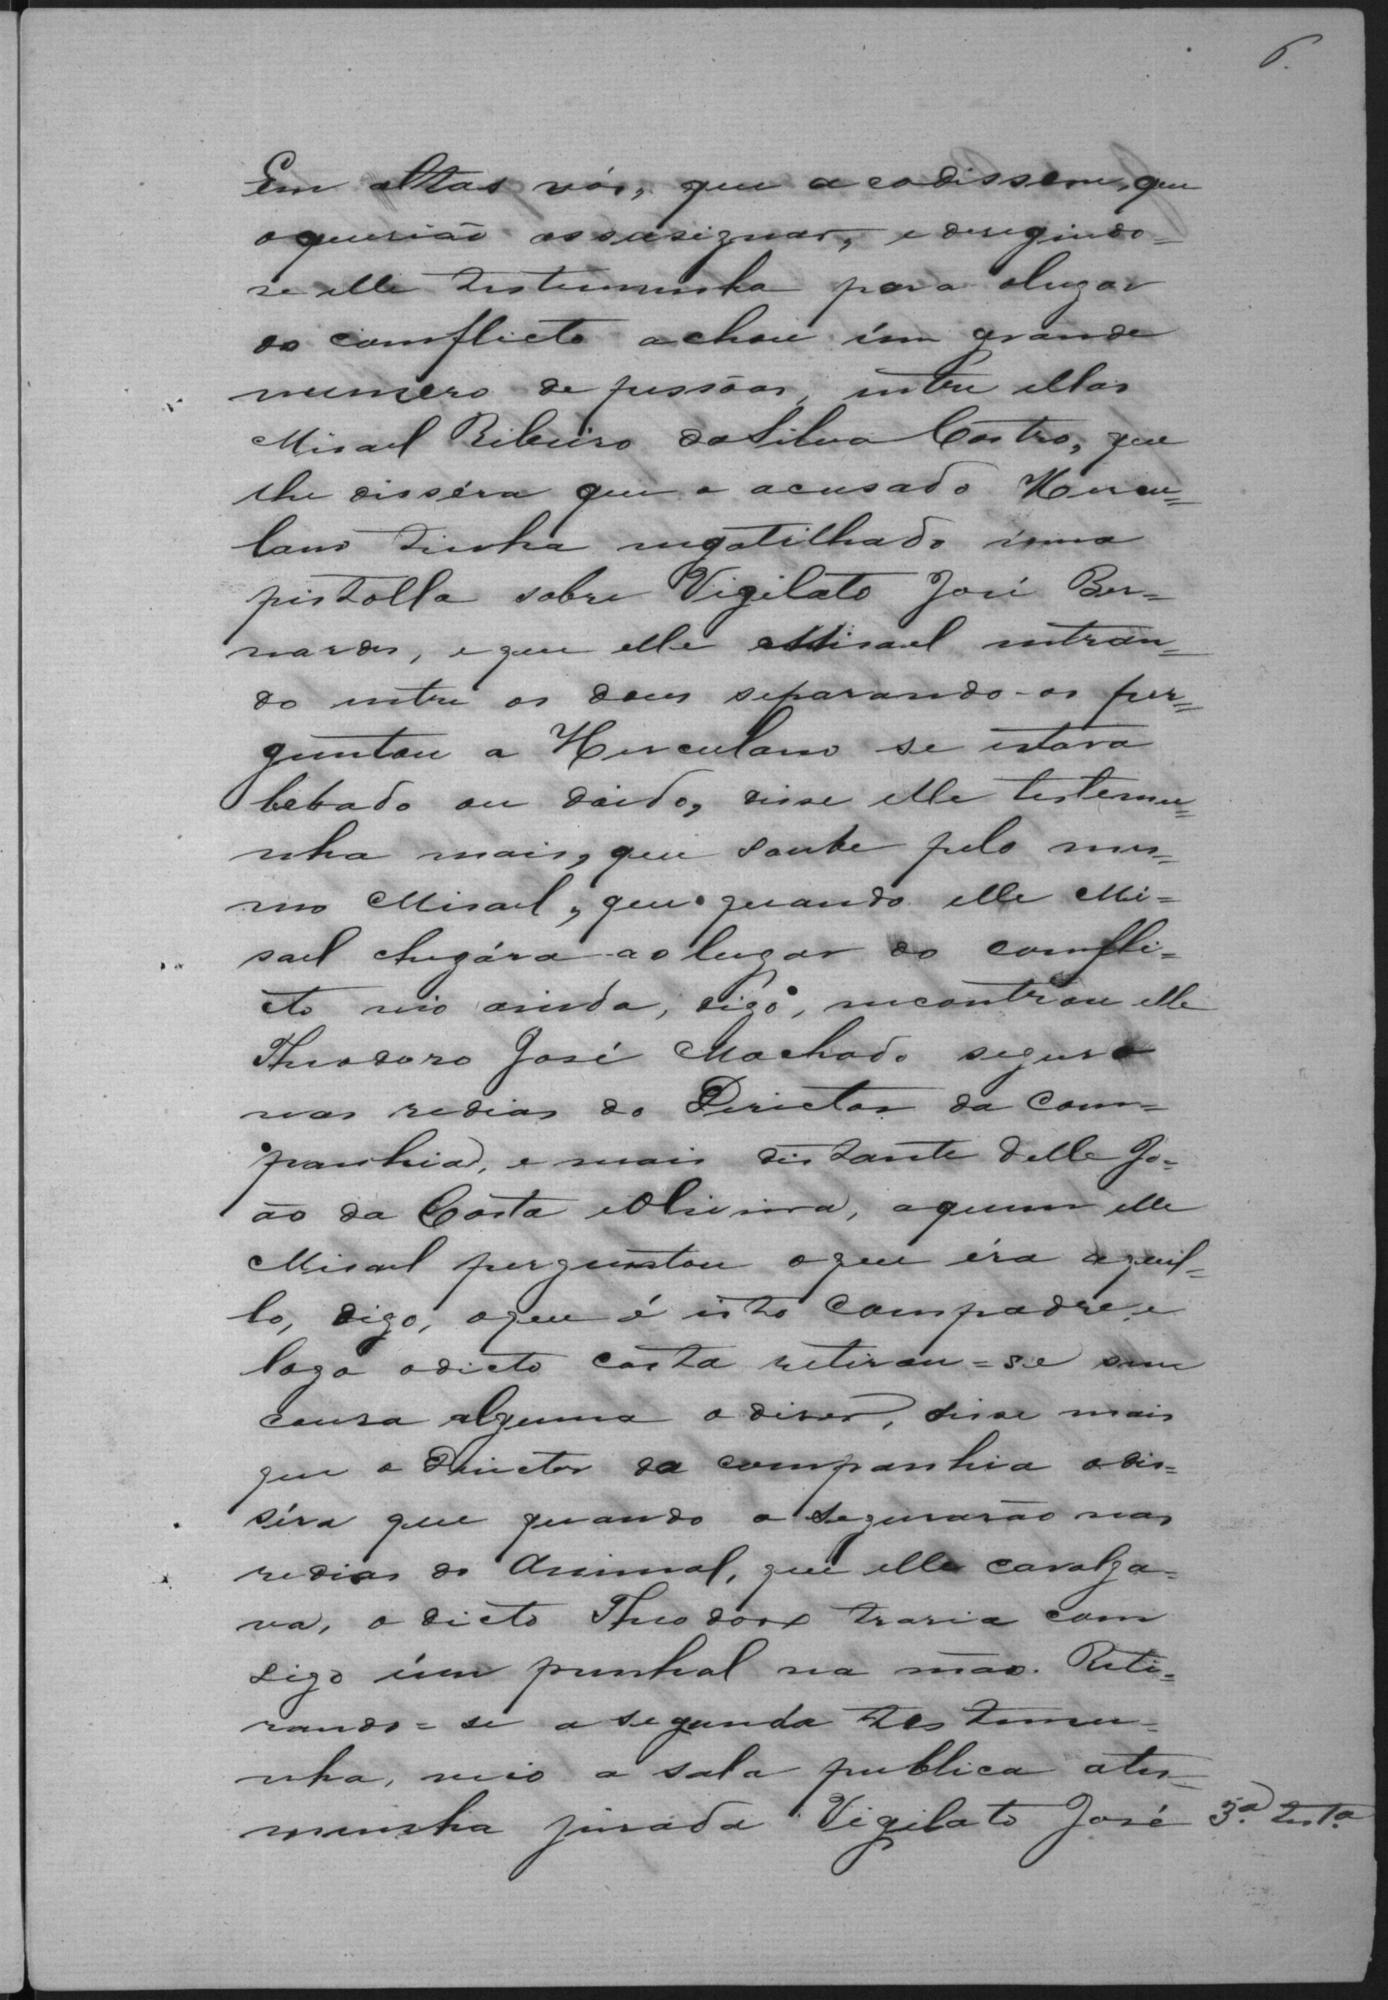 6.
Em altas vós, que acodissem, que
oquerião assasignar, e deregindo-
se elle testemunha para olugar
do comflicto achou úm grande
numero de pessôas, entre ellas
Misael Ribeiro da Silva Castro, que
lhe disséra que o acusado Hercu=
lano tinha engatilhado úma
pistolla sobre Vigilato José Ber=
nardes, e que elle Misael entran=
do entre os dous separando-os per=
guntou a Herculano se estava
bebado ou dôido, disse elle testemu=
nha mais, que soube pelo mes=
mo Misael, que quando elle Mi=
sael chegára ao lugar do comfli=
cto vio ainda, digo, encontrou elle
Theodoro José Machado seguro
nas redias do Director da Com=
panhia, e mais distante delle Jo=
ão da Costa e Oliveira, aquem elle
Misael perguntou oque éra aquil=
lo, digo, oque é isto Compadre, e
logo odicto Costa retirou=se sem
cousa alguma o diser, disse mais
que o Director da companhia odis=
séra que quando o segurarão nas
redias do Animal, que elle cavalga=
va, o dicto Theodoro traria com
sigo úm punhal na mão. Reti=
rando=se a segunda testemu=
nha, veio a sala publica ates=
munha jurada Vigilato José 3.ª test.ª